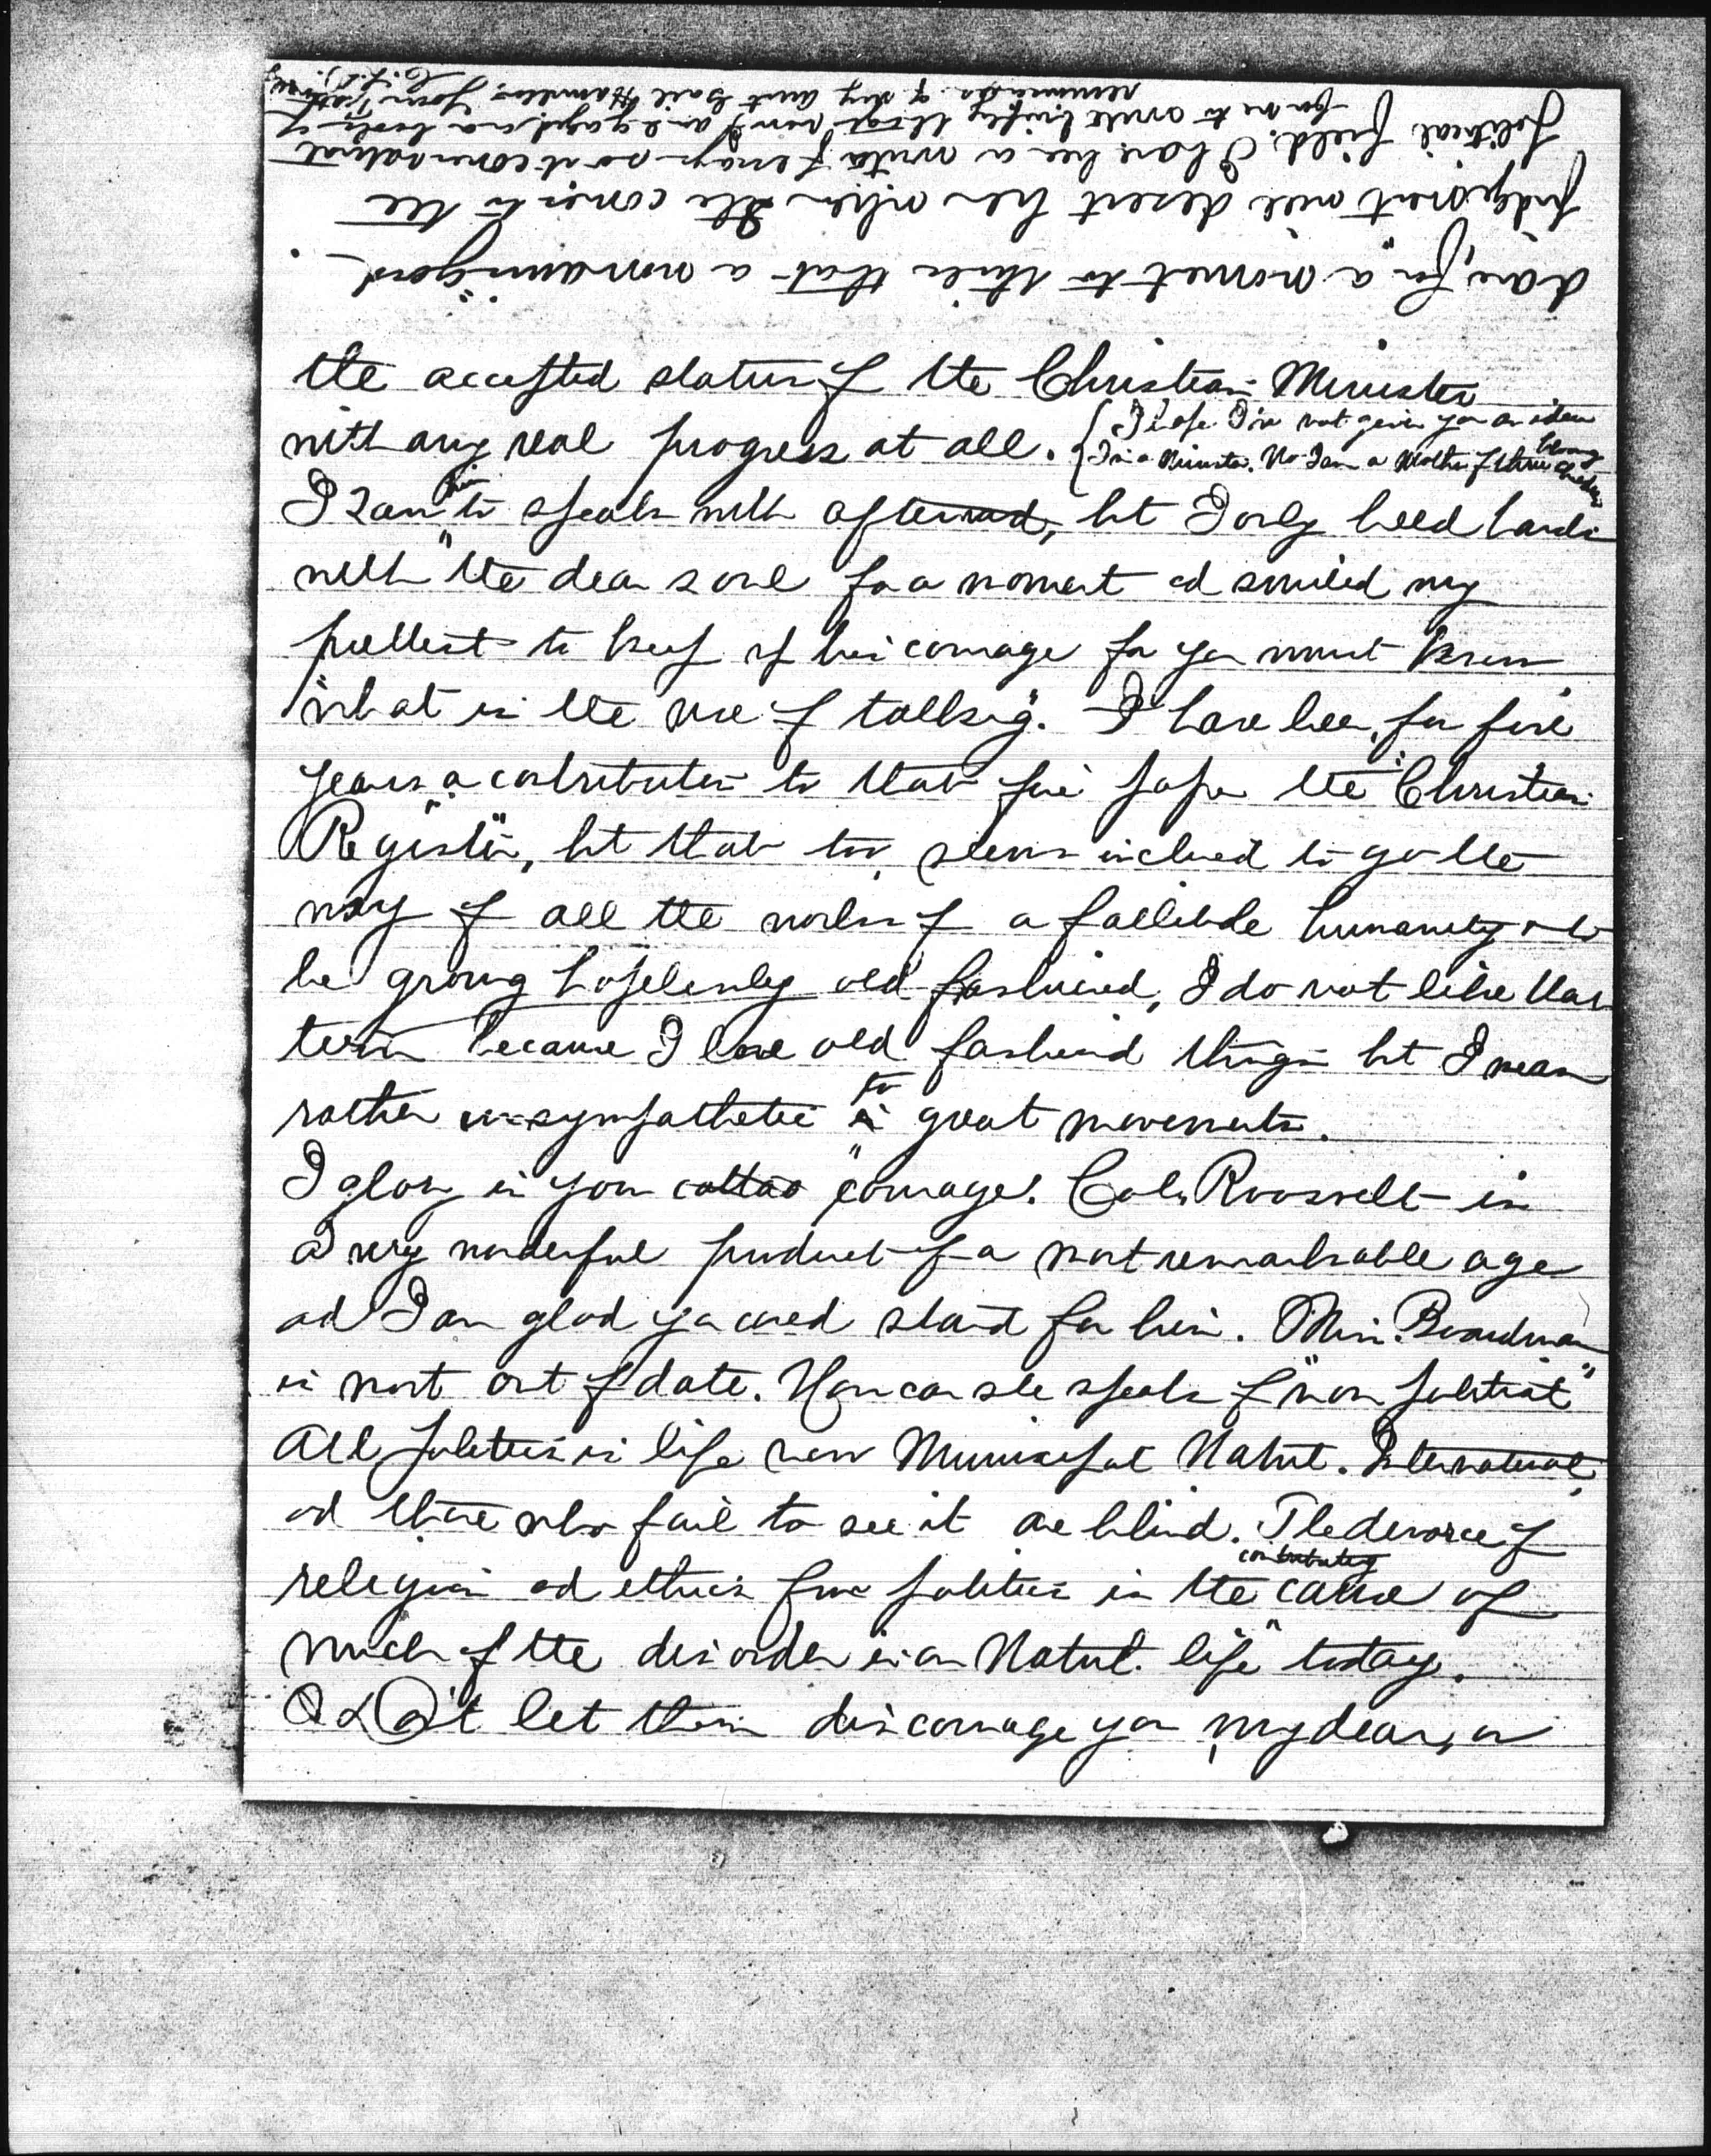 the accepted status of the Christian Minister
with any real progress at all. {I hope I've not given you an idea
I'm a Minister. No I am a Mother of three young children
I ran him to speak with afterward, but I only held hands
with "the dear soul for a moment and smiled my
prettiest to keep up his courage for you must know
"what is the use of talking". I have been, for five
years a contributor to that fine paper the "Christian
Register", but that too, seems inclined to go the
way of all the works of a fallible humanity & to
be growing hopelessly old fashioned, I do not like that
term because I love old fashioned things but I mean
rather unsympathetic to great movements.
I glory in your courage. Col. Roosevelt is
a very wonderful product of a most remarkable age
and I am glad you could stand for him. Miss Boardman
is most out of date. How can she speak of "non political"
All politics is life now Municipal Natnl. International,
and those who fail to see it are blind. The divorce of
religion and ethics from politics is the cause of
much of the disorder in our Natnl. life today.
Don't let them discourage you, my dear, or
dare, for a moment to think that a woman's "good
judgement" will desert her when she comes to the
political field. I have been a writer of essays so it comes natural
for me to write briefly though now I am engaged on a book of
reminiscences of my aunt Gail Hamilton. Yours